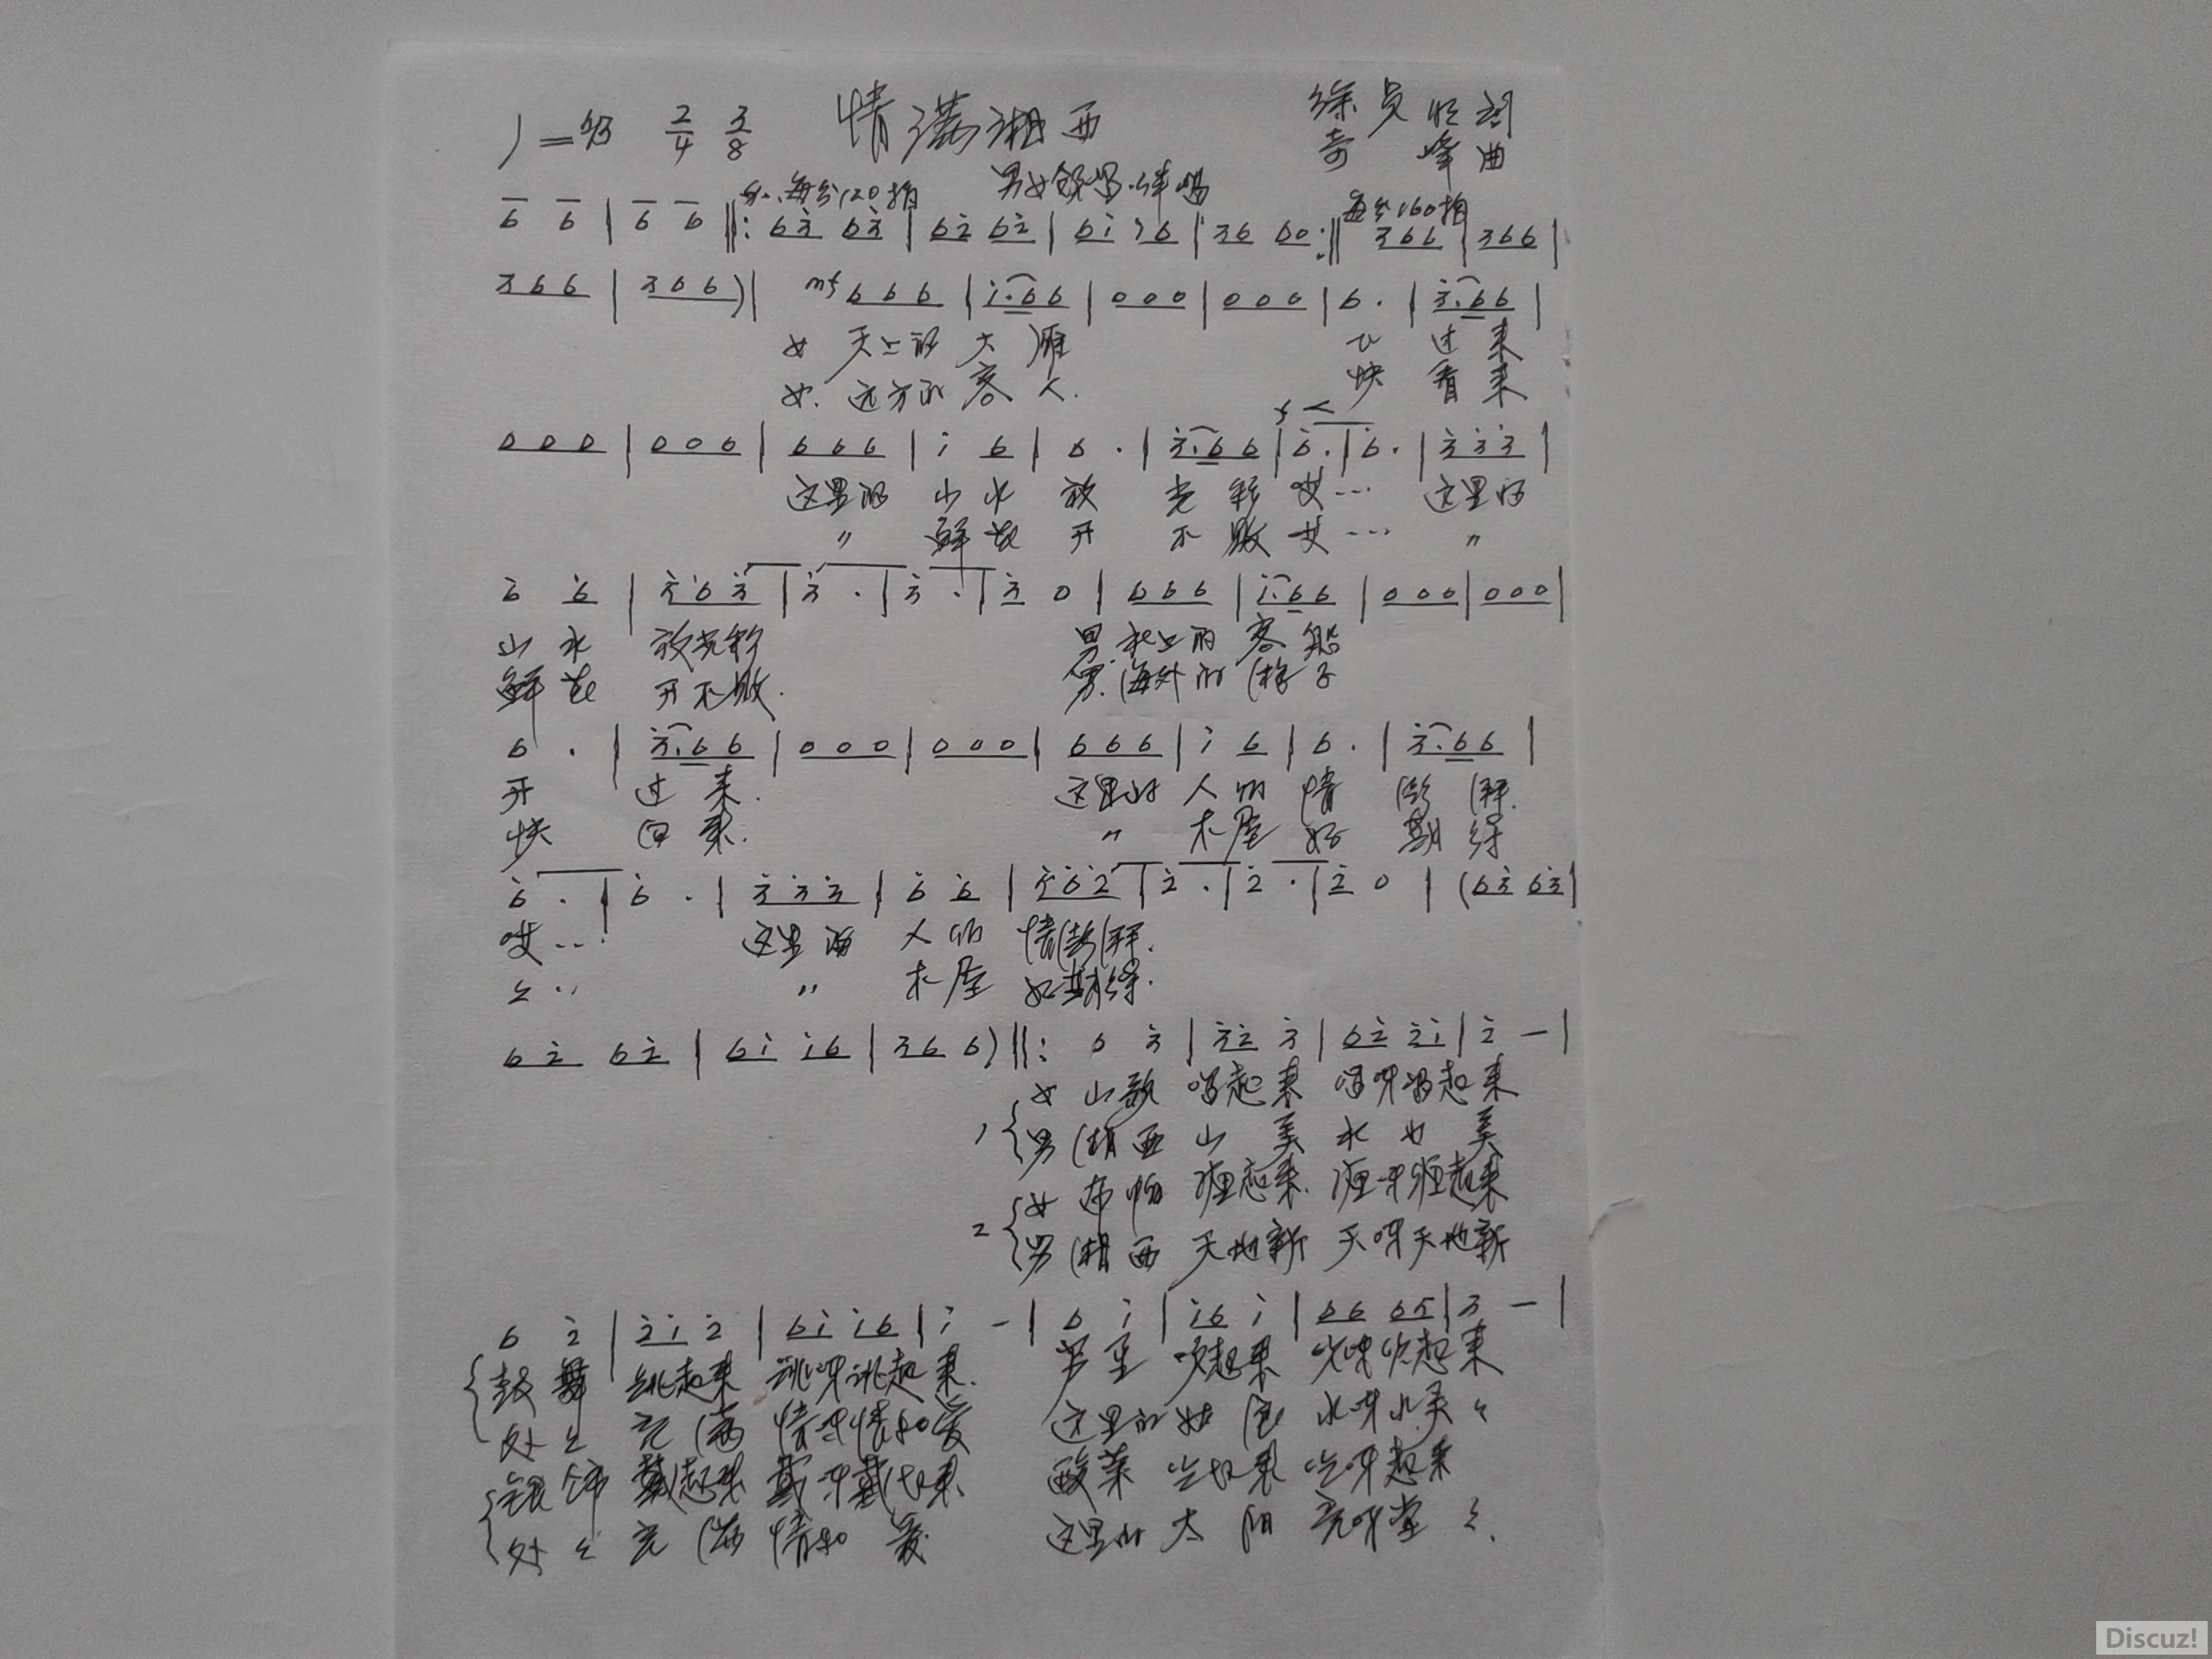 1=♭B 2/4 3/8 情满湘西 词
奇峰曲
男女领唱.伴唱
6 6 | 6 6 ‖: 每分120拍 6 3̇ 6 3̇ | 6 2̇ 6 2̇ | 6 1̇ 1̇ 6 | 3 6 6 0 :‖ 每分160拍 3 6 6 | 3 6 6 |
3 6 6 | 3 6 6 ) | mf 6 6 6 | 1̇. 6 6 | 0 0 0 | 0 0 0 | 6 . | 3̇. 6 6 |
女 天上的 大 雁 飞 过 来
女. 远方的 客 人. 快 看 来
0 0 0 | 0 0 0 | 6 6 6 | 1̇ 6 | 6 . | 3̇. 6 6 | 6̇ . | 6̇ . | 3̇ 3̇ 3̇ |
这里的 山 水 放 光 彩 哎… 这里的
〃 鲜 花 开 不 败 … 〃
6̇ 6̇ | 3̇ 6̇ 3̇ | 3̇ . | 3̇ . | 3̇ 0 | 6 6 6 | 1̇. 6 6 | 0 0 0 | 0 0 0 |
山 水 放光彩 男. 水上的 客 船
鲜 花 开不败. 男. 海外的 游 子
6 . | 3̇. 6 6 | 0 0 0 | 0 0 0 | 6 6 6 | 1̇ 6 | 6 . | 3̇. 6 6 |
开 过 来. 这里的 人 的 情 澎 湃.
快 回 来. 〃 木 屋 好
6̇ . | 6̇ . | 3̇ 3̇ 3̇ | 6̇ 6̇ | 3̇ 6̇ 2̇ | 2̇ . | 2̇ . | 2̇ 0 | ( 6 3̇ 6 3̇ |
哎… 这里的 人 的 情澎湃.
〃 木 屋 好
6 2̇ 6 2̇ | 6 1̇ 1̇ 6 | 3 6 6 ) ‖: 6 3̇ | 3̇ 2̇ 3̇ | 6 2̇ 2̇ 1̇ | 2̇ — |
女 山歌 唱起来 唱呀唱起来
1 男 湘西 山 美 水 也 美
女 起来. 呀 起来
2 男 湘西 天地新 天呀天地新
6 2̇ | 2̇ 1̇ 2̇ | 6 1̇ 1̇ 6 | 1̇ — | 6 1̇ | 1̇ 6 1̇ | 6 6 6 5 | 3 — |
鼓 舞 跳起来 跳呀跳起来. 芦笙 吹起来 吹呀吹起来
处 々 充 满 情呀情和爱 这里的 水呀水灵々
银 饰 戴起来 戴呀戴起来 酸菜 吃起来 吃呀起来
处 々 充 满 情和 爱 这里的 太 阳 亮呀堂 々.
Discuz!